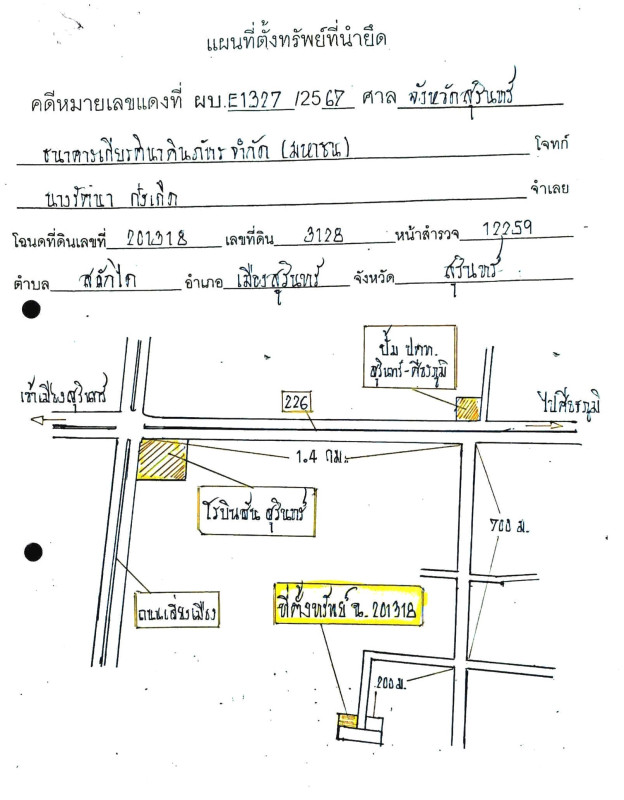 แผนที่ตั้งทรัพย์ที่นำยึด
คดีหมายเลขแดงที่ ผบ.E1327 /2567 ศาล จังหวัดสุรินทร์
ธนาคารเกียรตินาคินภัทร จำกัด (มหาชน) โจทก์
นางรัตนา ศรเกิด จำเลย
โฉนดที่ดินเลขที่ 201318 เลขที่ดิน 3128 หน้าสำรวจ 12259
ตำบล สลักได อำเภอ เมืองสุรินทร์ จังหวัด สุรินทร์
ปั้ม ปตท.
สุรินทร์-ศีขรภูมิ
เข้าเมืองสุรินทร์
226
ไปศีขรภูมิ
1.4 กม.
โรบินสัน สุรินทร์
700 ม.
ถนนเลี่ยงเมือง
ที่ตั้งทรัพย์ ฉ. 201318
200 ม.